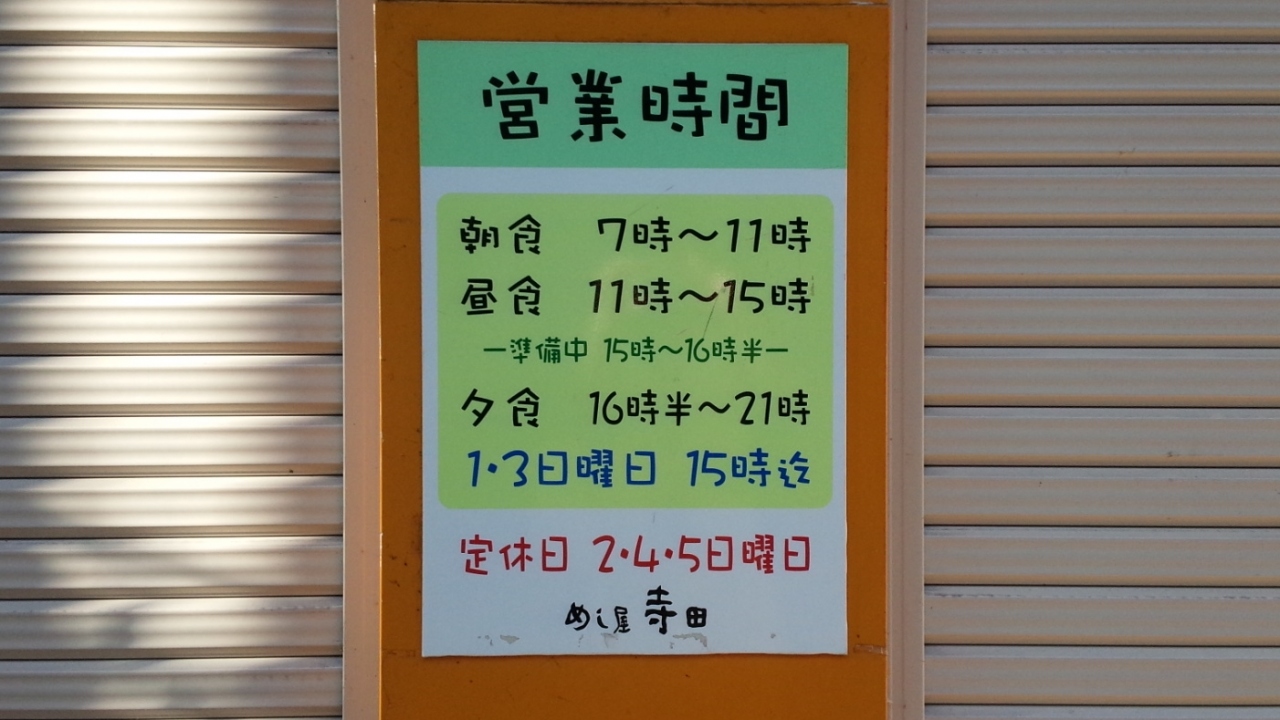 営業時間
朝食 7時～11時
昼食 11時～15時
ー準備中 15時～16時半ー
夕食 16時半～21時
1・3日曜日 15時迄
定休日 2・4・5日曜日
めし屋 寺田